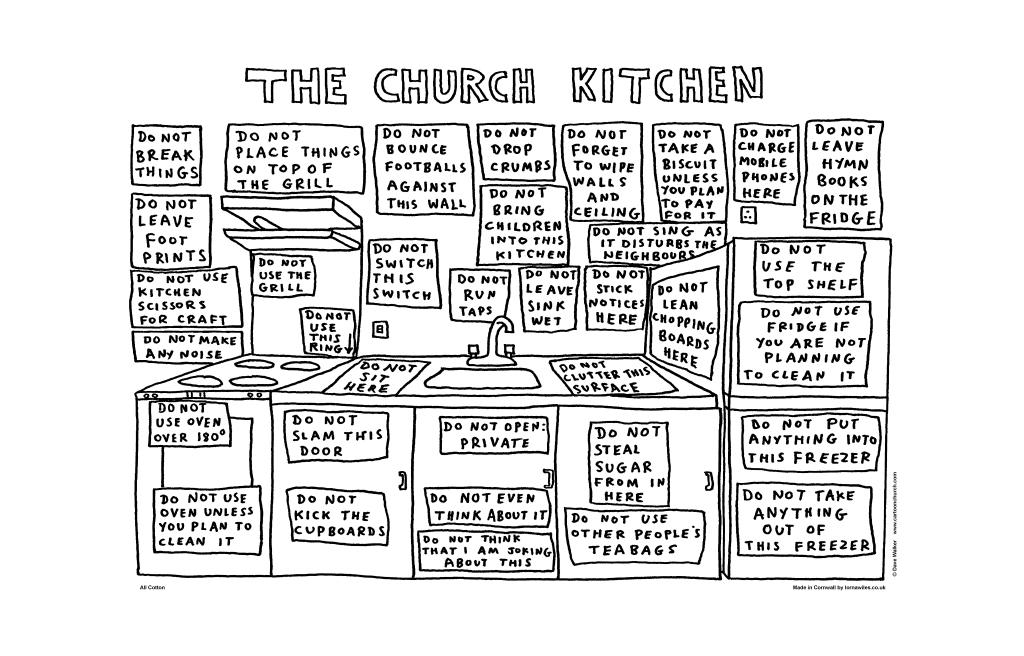 THE CHURCH KITCHEN
DO NOT
BREAK
THINGS
DO NOT
PLACE THINGS
ON TOP OF
THE GRILL
DO NOT
BOUNCE
FOOTBALLS
AGAINST
THIS WALL
DO NOT
DROP
CRUMBS
DO NOT
FORGET
TO WIPE
WALLS
AND
CEILING
DO NOT
TAKE A
BISCUIT
UNLESS
YOU PLAN
TO PAY
FOR IT
DO NOT
CHARGE
MOBILE
PHONES
HERE
DO NOT
LEAVE
HYMN
BOOKS
ON THE
FRIDGE
DO NOT
LEAVE
FOOT
PRINTS
DO NOT
BRING
CHILDREN
INTO THIS
KITCHEN
DO NOT SING AS
IT DISTURBS THE
NEIGHBOURS
DO NOT USE
KITCHEN
SCISSORS
FOR CRAFT
DO NOT
USE THE
GRILL
DO NOT
SWITCH
THIS
SWITCH
DO NOT
RUN
TAPS
DO NOT
LEAVE
SINK
WET
DO NOT
STICK
NOTICES
HERE
DO NOT
LEAN
CHOPPING
BOARDS
HERE
DO NOT
USE THE
TOP SHELF
DO NOT MAKE
ANY NOISE
DO NOT
USE
THIS
RING
DO NOT USE
FRIDGE IF
YOU ARE NOT
PLANNING
TO CLEAN IT
DO NOT
SIT
HERE
DO NOT
CLUTTER THIS
SURFACE
DO NOT
USE OVEN
OVER 180°
DO NOT
SLAM THIS
DOOR
DO NOT OPEN:
PRIVATE
DO NOT
STEAL
SUGAR
FROM IN
HERE
DO NOT PUT
ANYTHING INTO
THIS FREEZER
DO NOT USE
OVEN UNLESS
YOU PLAN TO
CLEAN IT
DO NOT
KICK THE
CUPBOARDS
DO NOT EVEN
THINK ABOUT IT
DO NOT THINK
THAT I AM JOKING
ABOUT THIS
DO NOT USE
OTHER PEOPLE'S
TEABAGS
DO NOT TAKE
ANYTHING
OUT OF
THIS FREEZER
© Dave Walker www.cartoonchurch.com
Ali Cotton
Made in Cornwall by lornawiles.co.uk